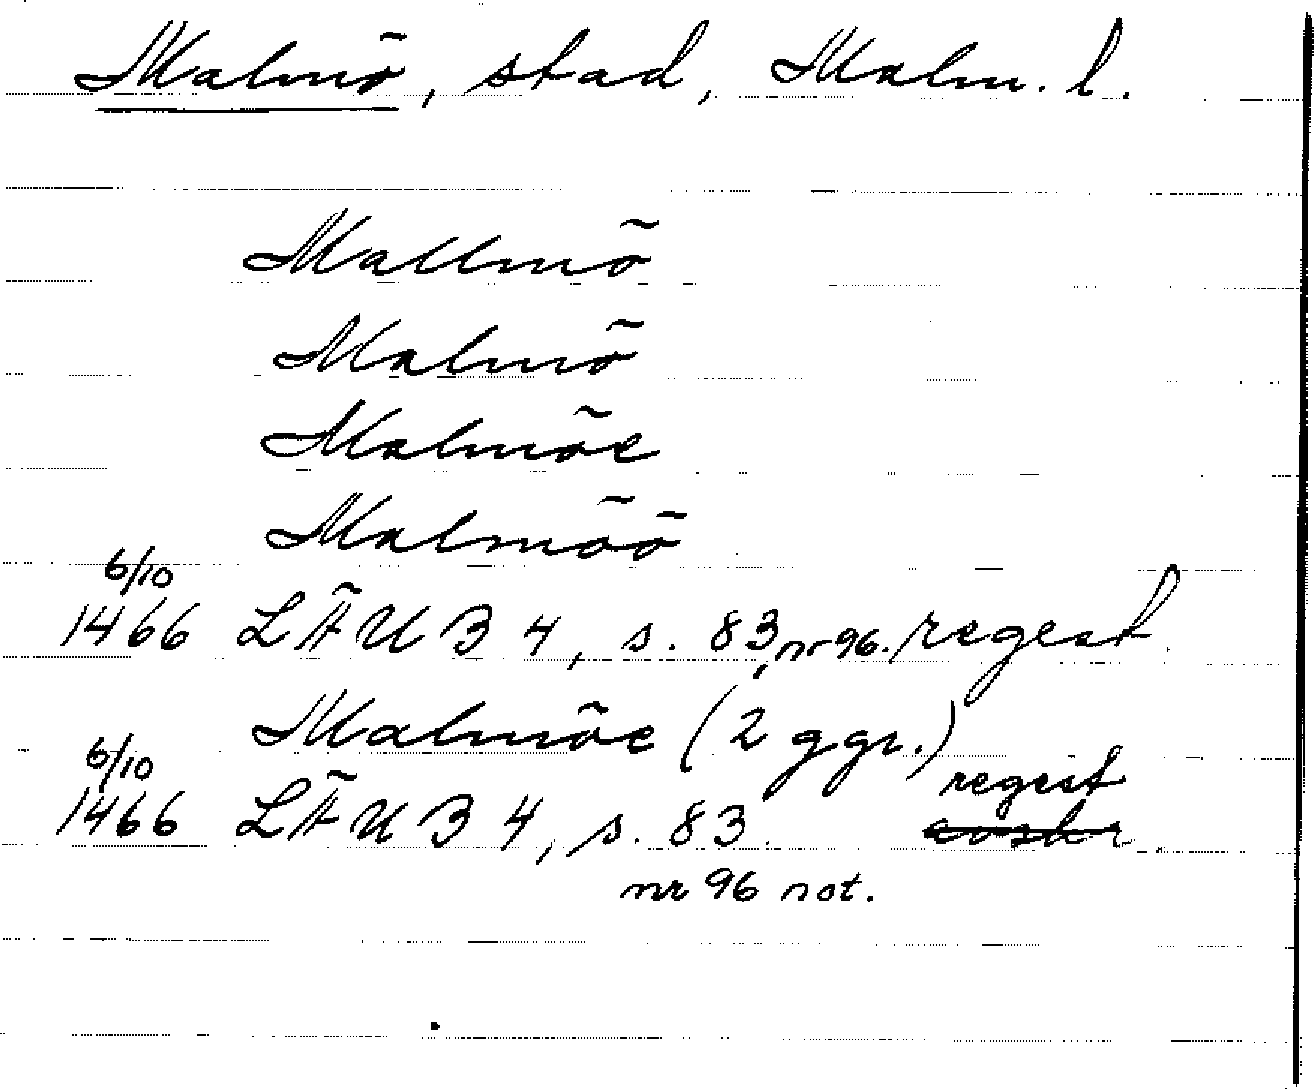 Malmö, stad, Malm. l.
Mallmö
Malmö
Malmöe
Malmöö
6/10
1466 LÄUB 4, s. 83, nr 96. regest
Malmöe (2 ggr.)
6/10 regest
1466 LÄUB 4, s. 83.
nr 96 not.